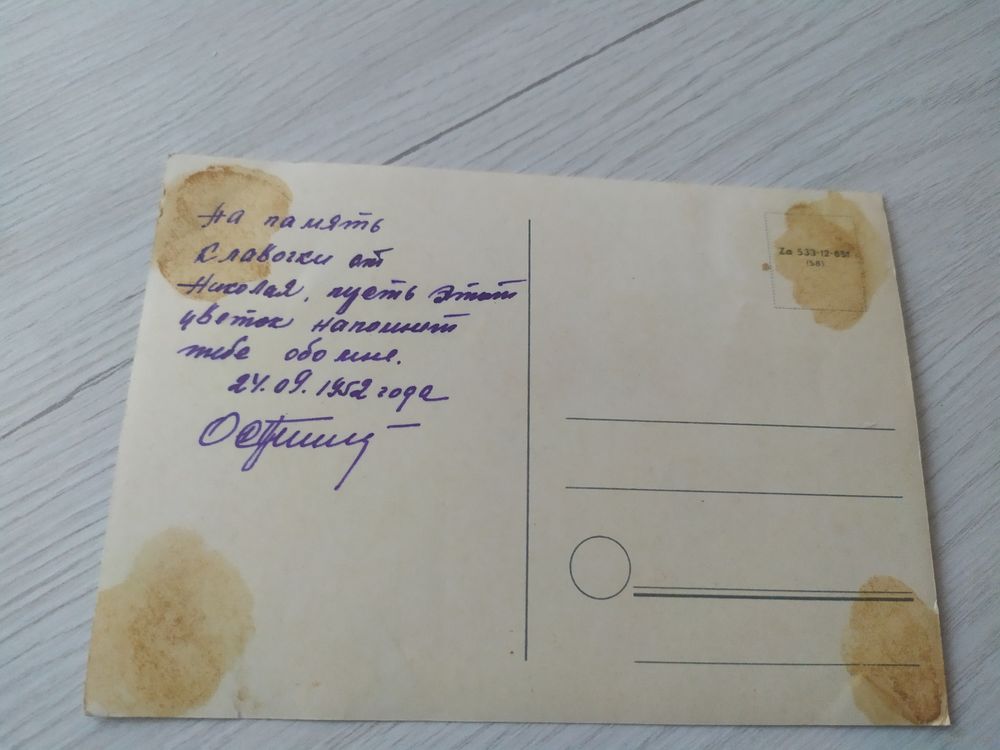 На память
Клавочки от
Николая, пусть этот
цветок напомнит
тебе обо мне.
24.09.1952 года
Za 533-12-651
(58)